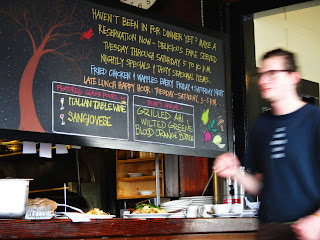 HAVEN'T BEEN IN FOR DINNER YET? MAKE A
RESERVATION NOW - DELICIOUS FARE SERVED
TUESDAY THROUGH SATURDAY 5 TO 9 P.M.
NIGHTLY SPECIALS & TASTY SEASONAL ITEMS.
FRIED CHICKEN & WAFFLES EVERY FRIDAY & SATURDAY NIGHT
LATE LUNCH HAPPY HOUR: TUESDAY-SATURDAY, 3-5 P.M.
FEATURED GLASS POURS
ITALIAN TABLE WINE
SANGIOVESE
TODAY'S SPECIAL
GRILLED AHI
WILTED GREENS
BLOOD ORANGE BUERRE